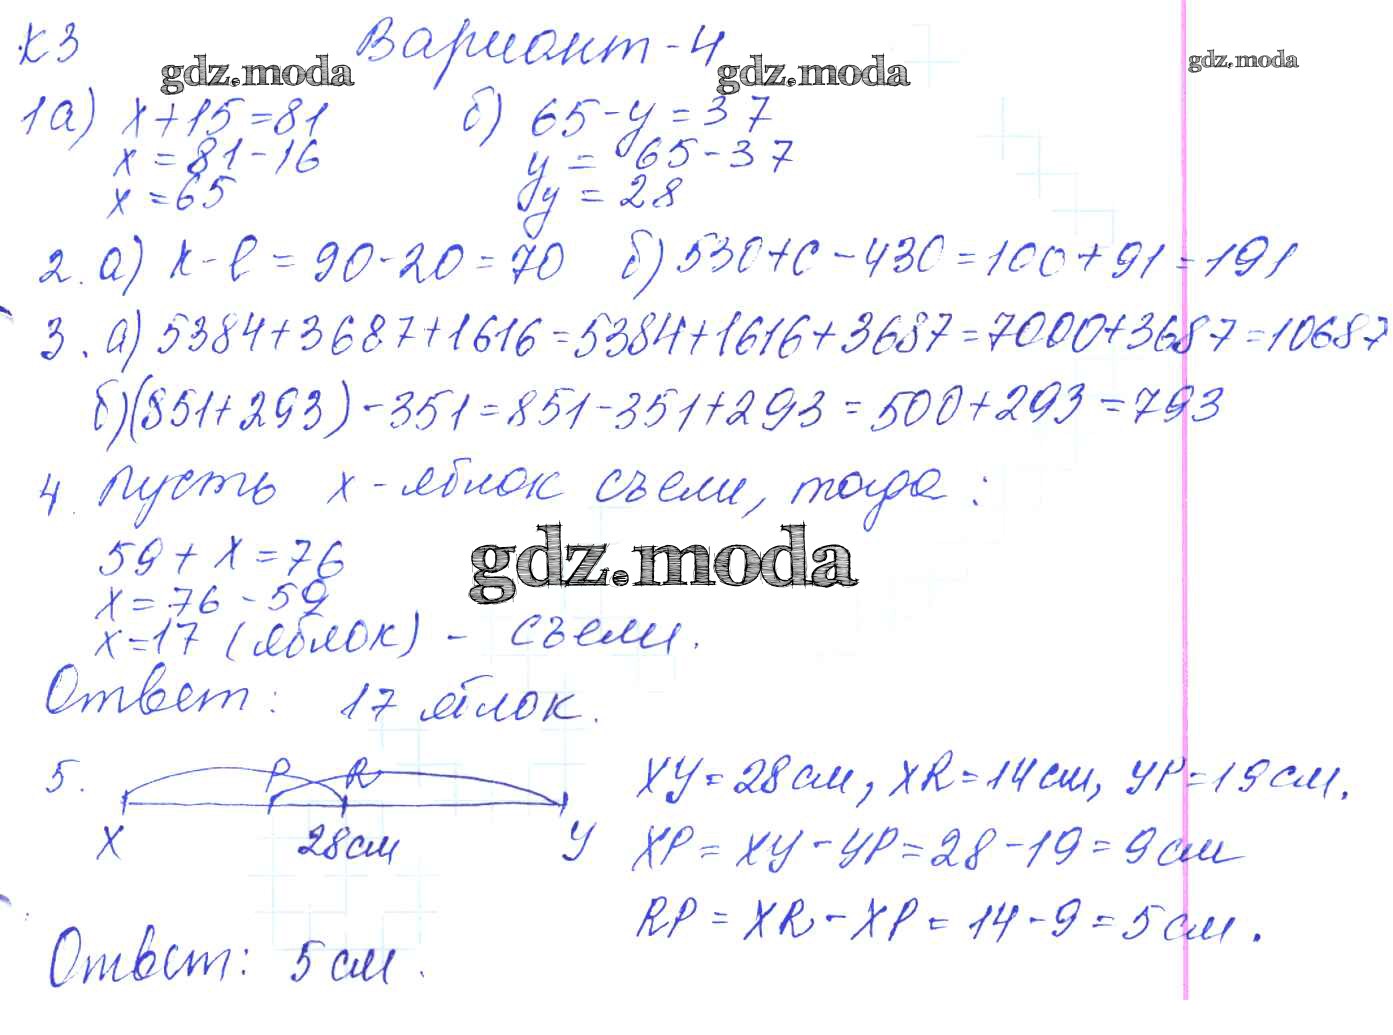 К3 Вариант-4
gdz.moda gdz.moda gdz.moda
1а) x+15=81 б) 65-y=37
x=81-16 y=65-37
x=65 y=28
2. а) k-l=90-20=70 б) 530+c-430=100+91=191
3. а) 5384+3687+1616=5384+1616+3687=7000+3687=10687
б) (851+293)-351=851-351+293=500+293=793
4. Пусть x-яблок съели, тогда:
59+x=76
gdz.moda
x=76-59
x=17 (яблок) - съели.
Ответ: 17 яблок.
5. P R XY=28см, XR=14см, YP=19см.
X 28см Y XP=XY-YP=28-19=9см
RP=XR-XP=14-9=5см.
Ответ: 5см.